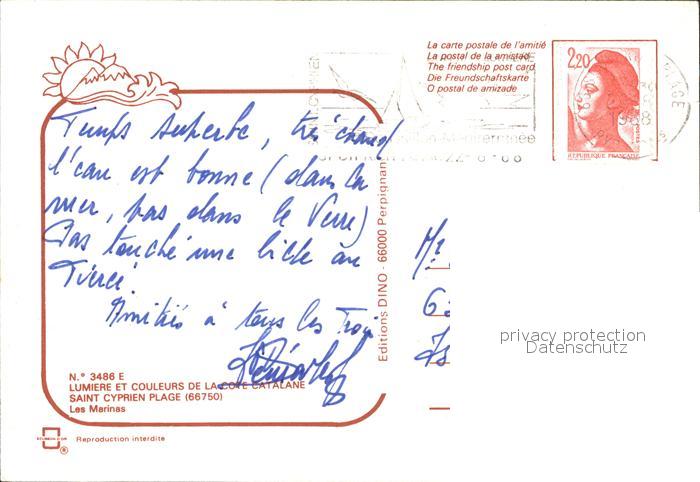 La carte postale de l'amitié
La postal de la amistad
The friendship post card
Die Freundschaftskarte
O postal de amizade
2,20
1988
REPUBLIQUE FRANÇAISE
Temps superbe, très chaud
l'eau est bonne (dans la
mer, pas dans le Verre)
Pas touché une bille au
Tiercé.
Amitiés à tous les Trois
Editions DINO - 66000 Perpignan
Mr
6
privacy protection
Datenschutz
N.° 3486 E
LUMIERE ET COULEURS DE LA COTE CATALANE
SAINT CYPRIEN PLAGE (66750)
Les Marinas
Reproduction interdite